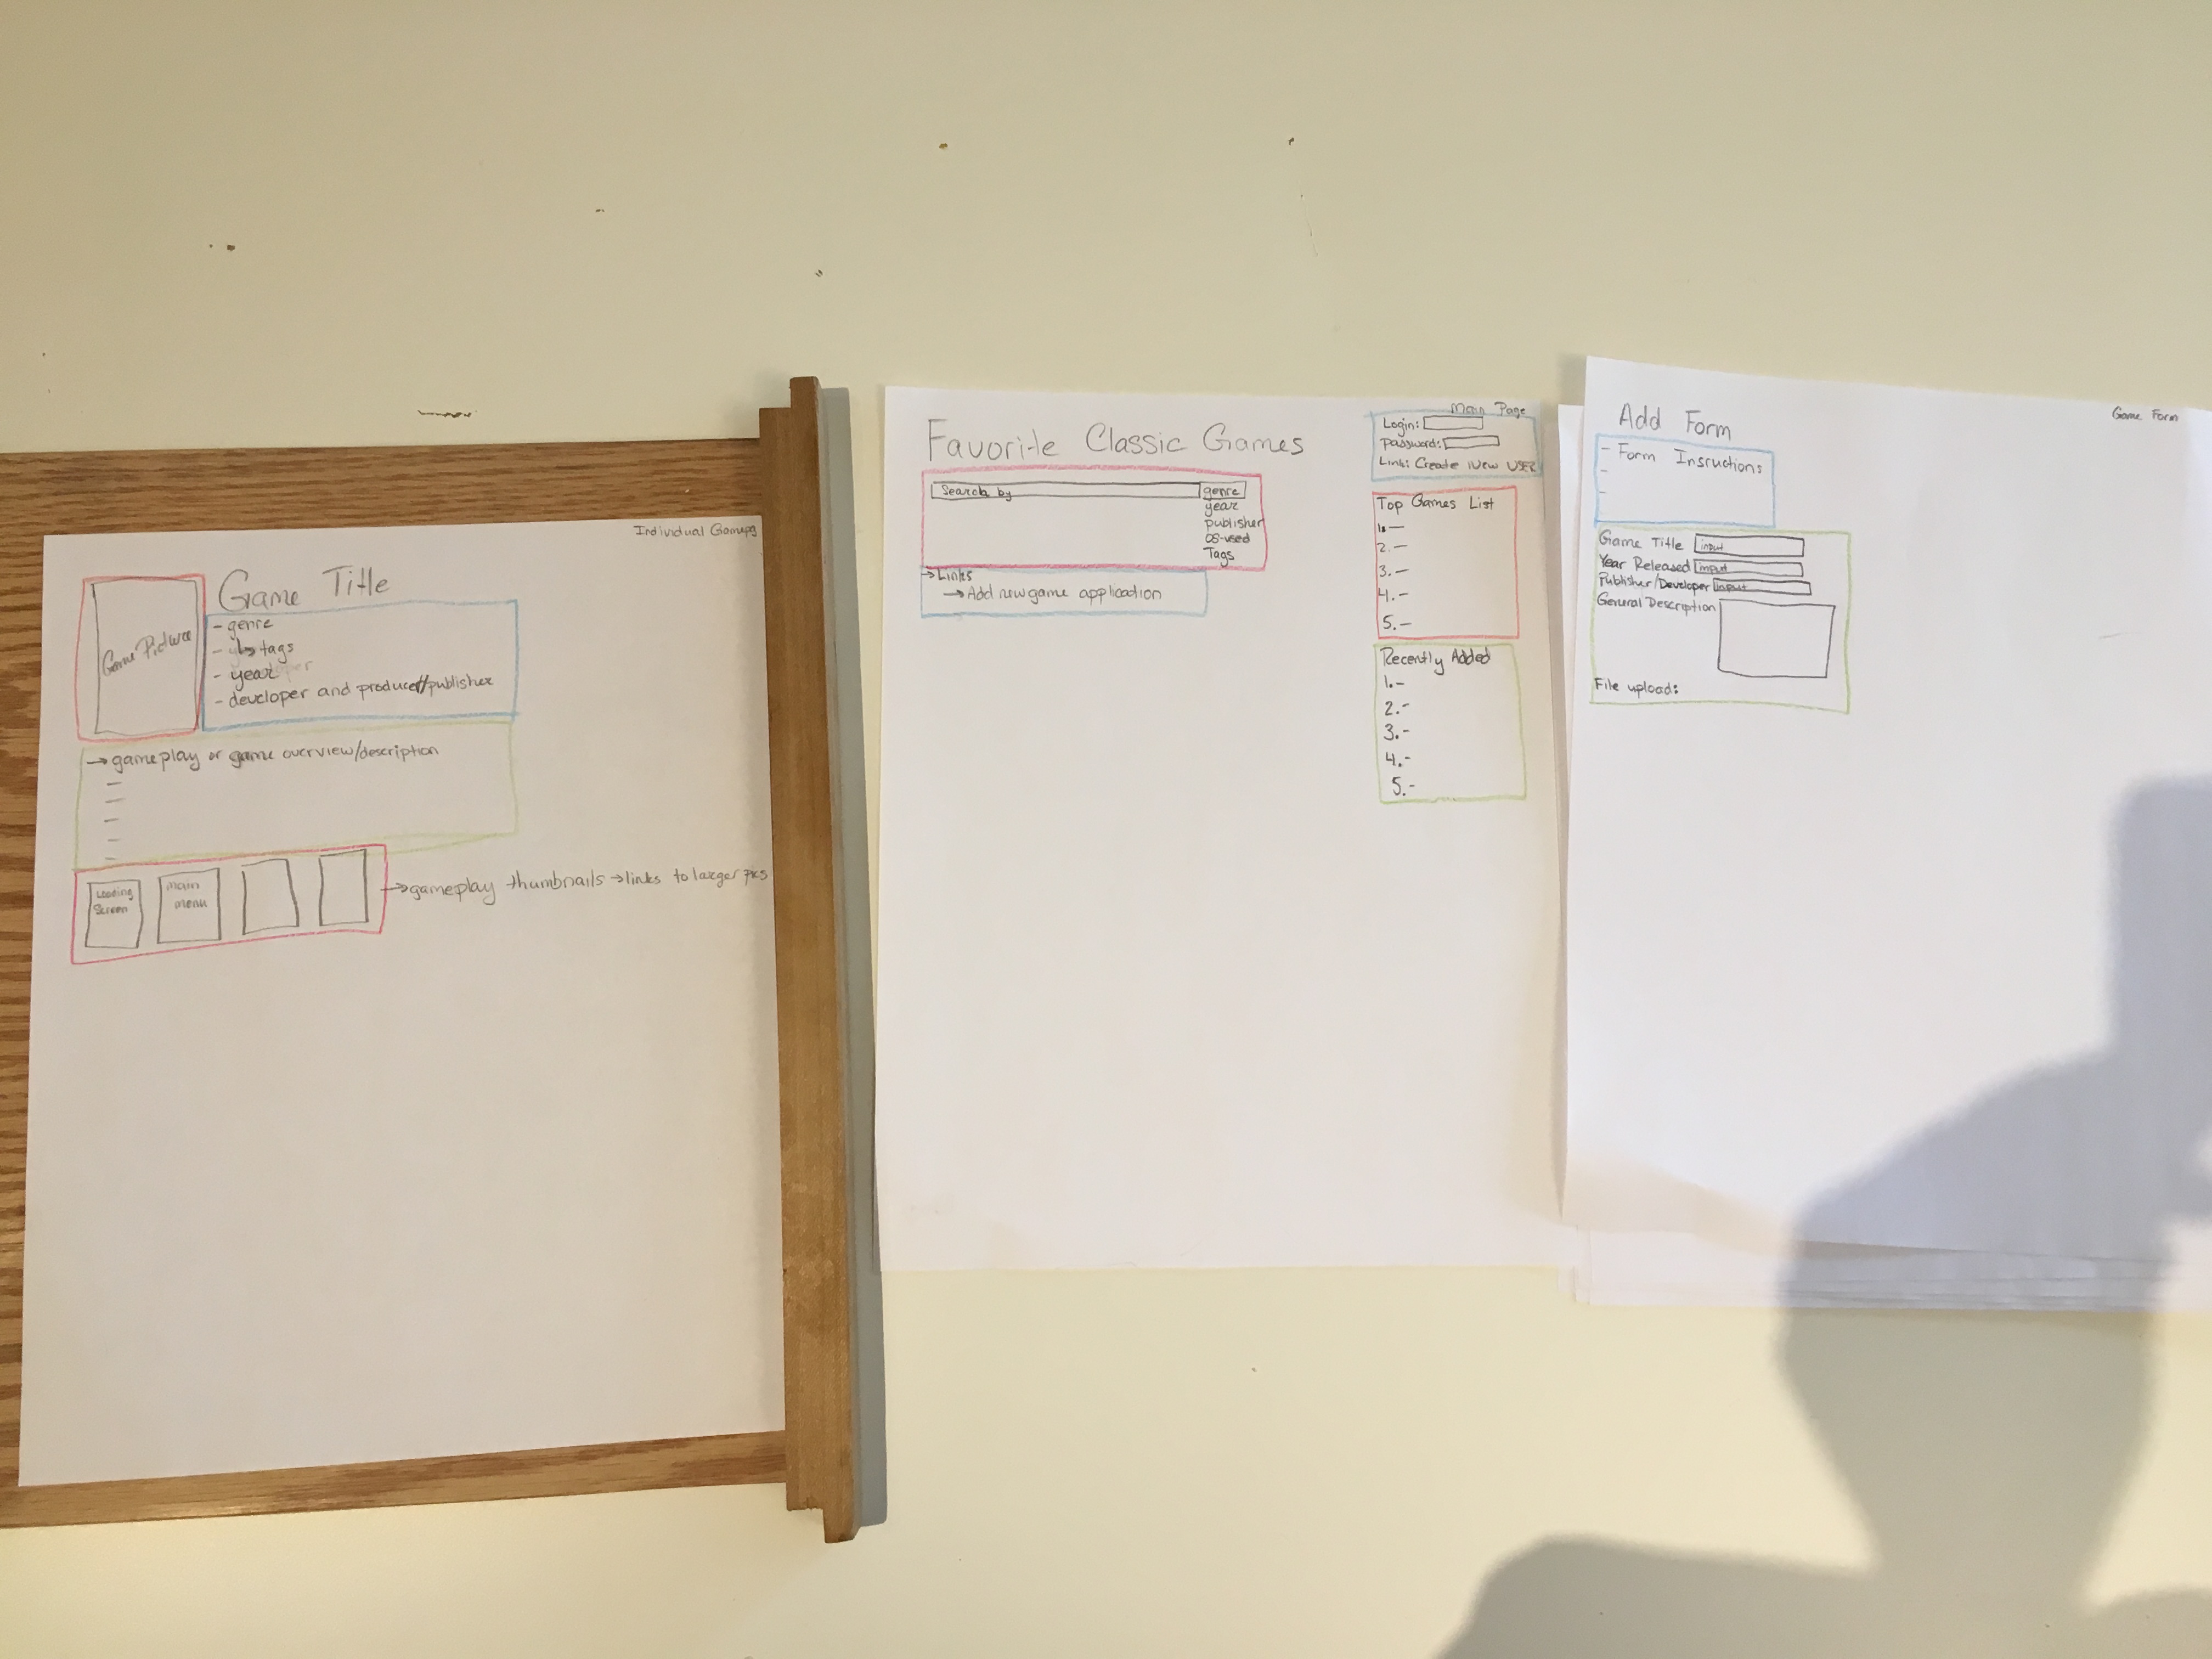 Individual Gamepg
Game Title
Game Picture
- genre
- tags
- year
- developer and producer/publisher
→ gameplay or game overview/description
-
-
-
-
Loading
Screen
main
menu
→ gameplay thumbnails → links to larger pics
Main Page
Favorite Classic Games
Search by
genre
year
publisher
OS-used
Tags
→ Links
→ Add new game application
Login:
Password:
Link: Create New USER
Top Games List
1. -
2. -
3. -
4. -
5. -
Recently Added
1. -
2. -
3. -
4. -
5. -
Game Form
Add Form
- Form Insructions
-
-
Game Title input
Year Released input
Publisher/Developer input
General Description
File upload: